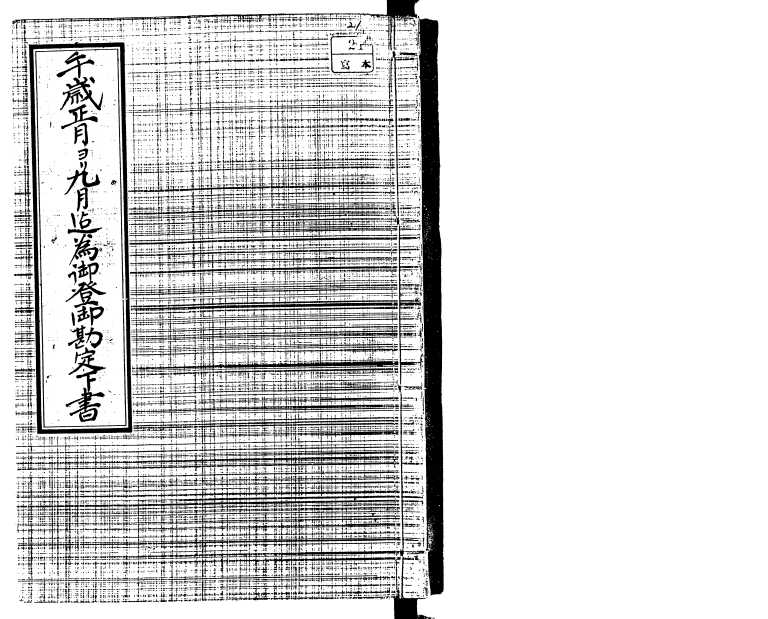 午歳正月ヨリ九月迄為御登御勘定下書
21
21
写本